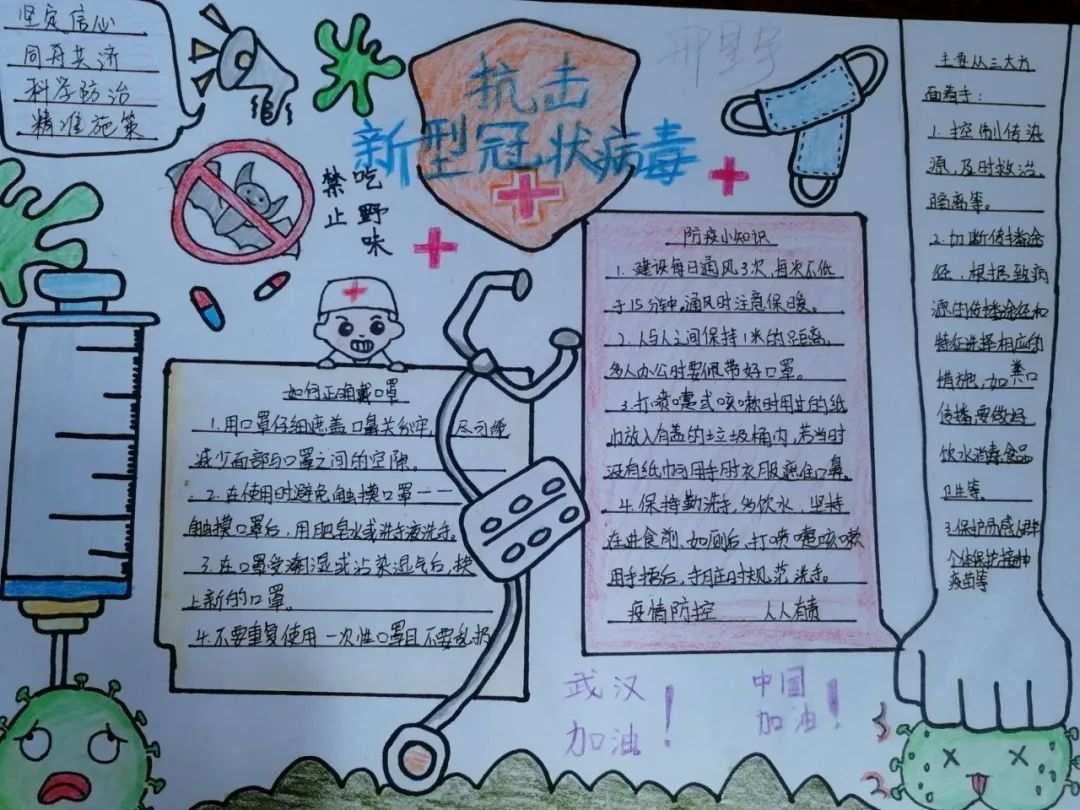 坚定信心
同舟共济
科学防治
精准施策
抗击
新型冠状病毒
禁止
吃野味
如何正确戴口罩
1.用口罩仔细遮盖口鼻关分牢,尽可能
减少面部与口罩之间的空隙。
2.在使用时避免触摸口罩一一
触摸口罩后,用肥皂水或洗手液洗手。
3.在口罩受潮湿或沾染湿气后,换
上新的口罩。
4.不要重复使用一次性口罩且不要乱扔
防疫小知识
1.建设每日通风3次,每次不低
于15分钟。通风时注意保暖。
2.人与人之间保持1米的距离,
多人办公时要佩带好口罩。
3.打喷嚏或咳嗽时用过的纸
巾放入有盖的垃圾桶内,若当时
没有纸巾可用手肘衣服遮住口鼻。
4.保持勤洗手,多饮水,坚持
在进食前、如厕后,打喷嚏咳嗽
用手捂后,手脏时规范洗手。
疫情防控 人人有责
武汉
加油!
中国
加油!
主要从三大方
面着手:
1.控制传染
源,及时救治,
隔离等。
2.切断传播途
径,根据致病
源的传播途径和
特征选择相应的
措施,如粪口
传播,要做好
饮水消毒食品
卫生等。
3.保护易感人群
个体保护接种
疫苗等